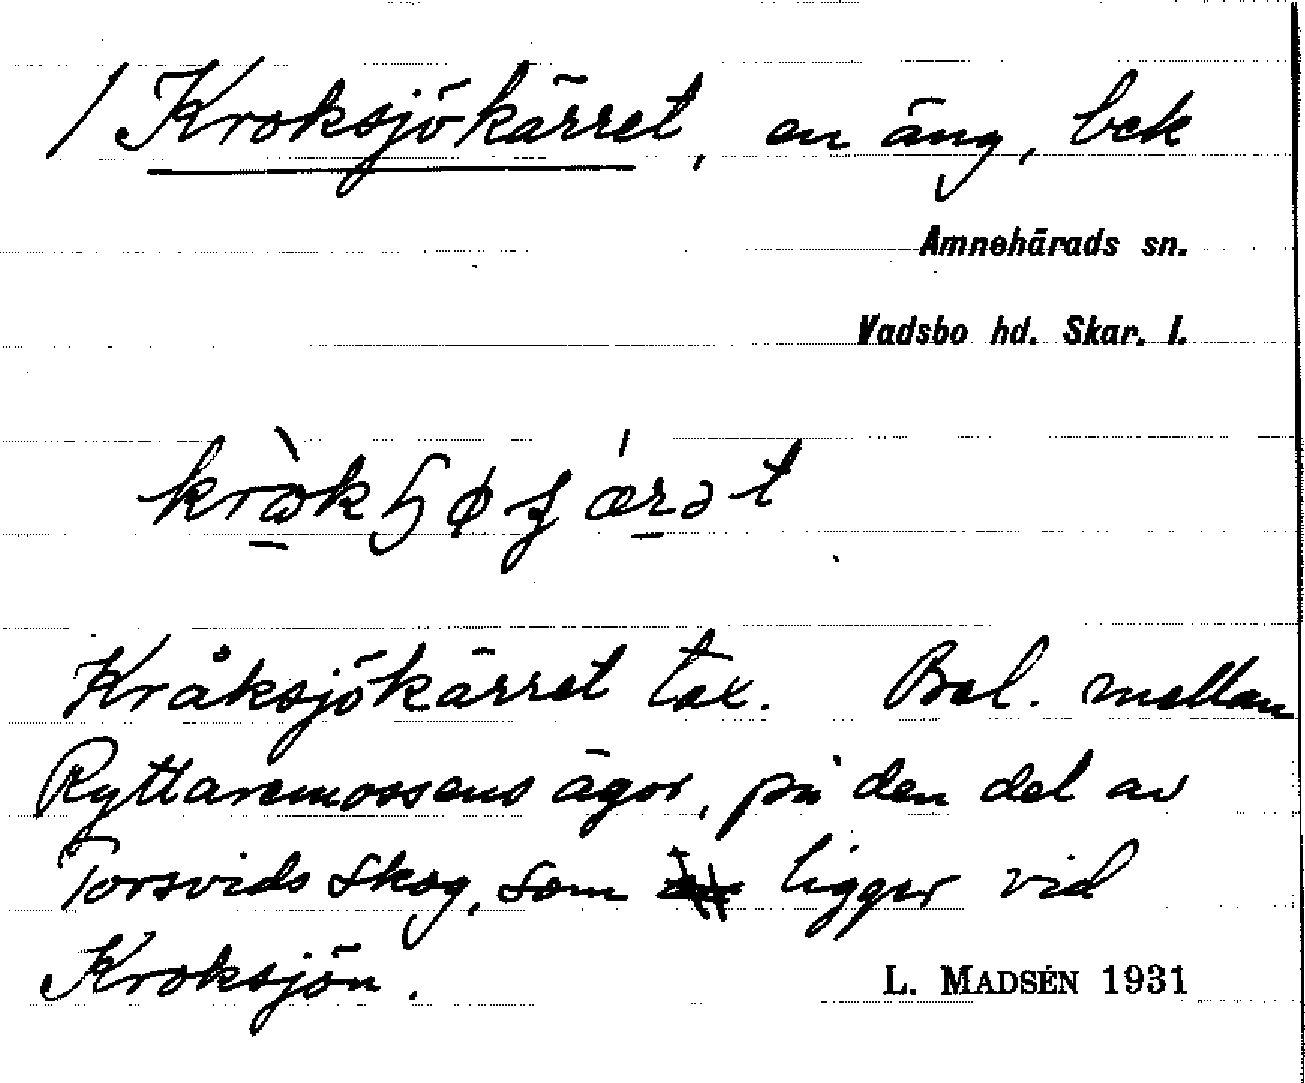 / Kroksjökärret, en äng, bek
Amnehärads sn.
Vadsbo hd. Skar. l.
Kråksjökärret tax. Bel. mellan
Ryttaremossens ägor, på den del av
Torsvids skog, som ligger vid
Kroksjön.
L. MADSÉN 1931